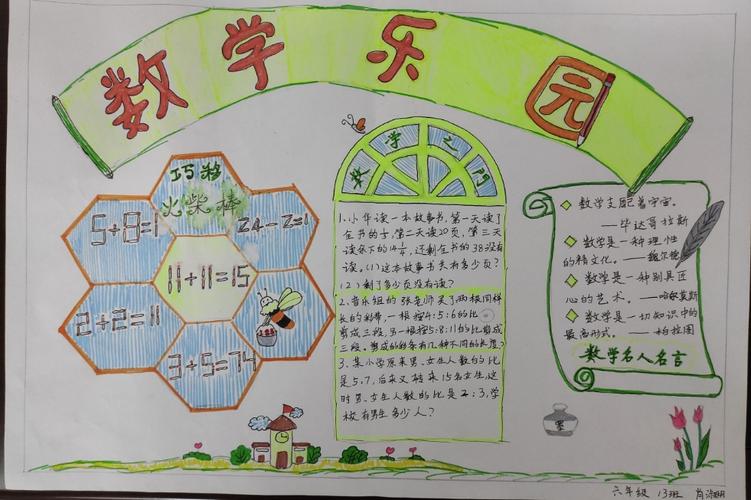 数学乐园
巧移
火柴棒
5+8=1
24-2=1
11+11=15
2+2=11
3+5=74
数学之门
1.小华读一本故事书,第一天读了
全书的 第二天读20页,第三天
读余下的 还剩全书的 38没有
读。(1)这本故事书共有多少页?
(2)剩了多少页没有读?
2.音乐组的 张老师买了两根同样
长的彩带,一根按4:5:6的比
剪成三段,另一根按5:8:11的比剪成
三段。剪成的彩条有几种不同的长度?
3.某小学原来男、女生人数的比
是5:7,后来又转来15名女生,这
时男、女生人数的比是2:3,学
校有男生多少人?
数学支配着宇宙。
——毕达哥拉斯
数学是一种理性
的精文化。——魏尔德
数学是一种别具匠
心的艺术。——哈尔莫斯
数学是一切知识中的
最高形式。——柏拉图
数学名人名言
墨
六年级 13班 肖